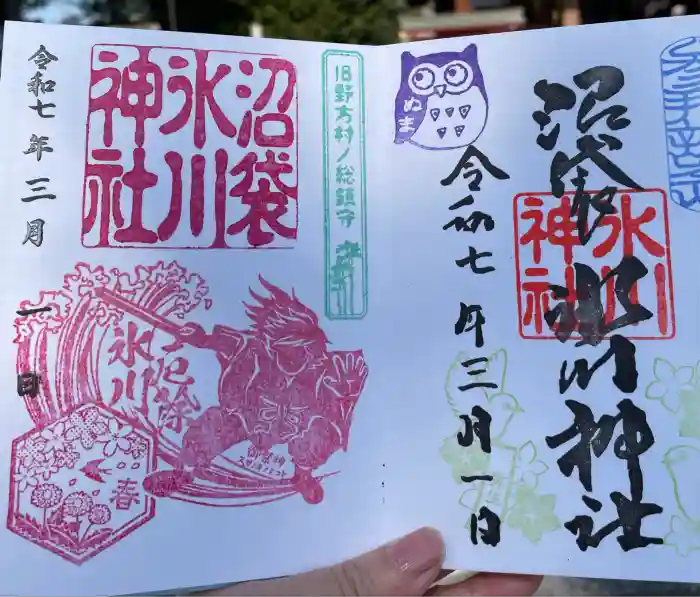 沼袋
氷川
神社
令和七年三月一日
旧野方村ノ総鎮守
厄除
氷川
春
ぬま
沼袋氷川神社
氷川
神社
令和七年三月一日